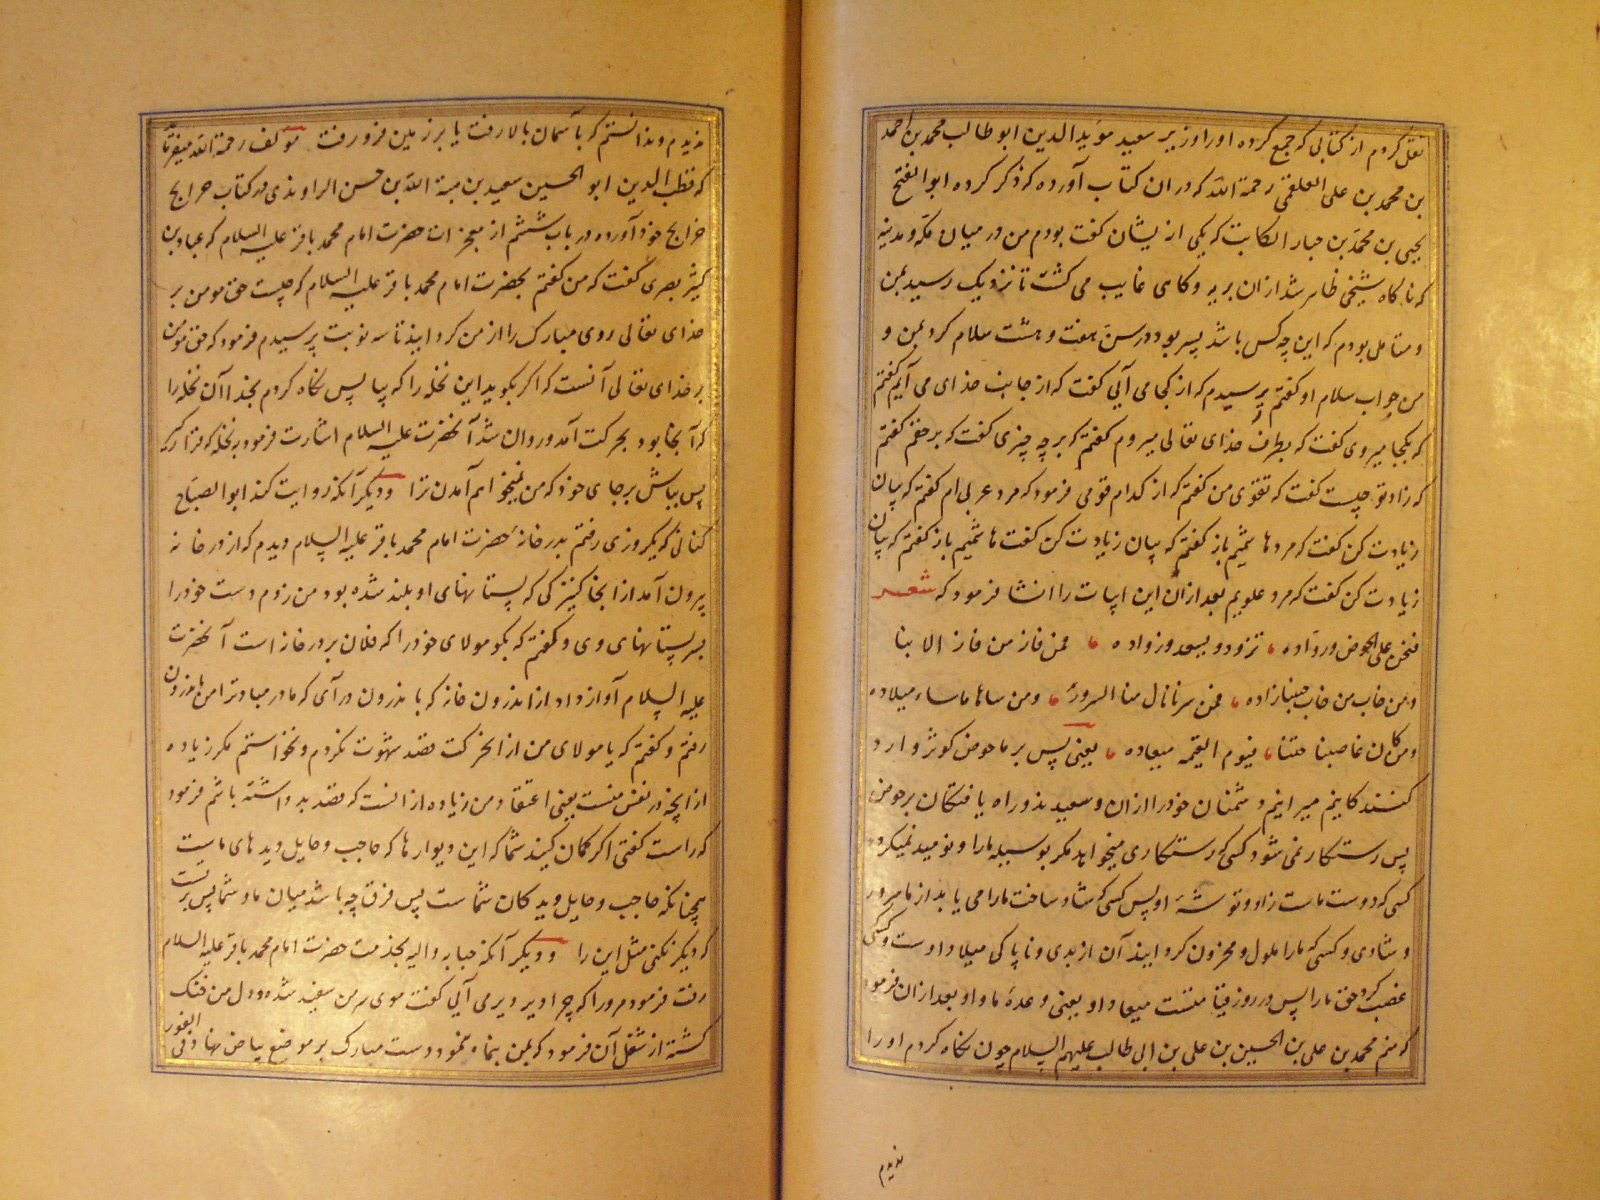 نقل کردم از کتابی که جمع کرده او را وزیر سعید مؤید الدین ابو طالب محمد بن احمد
بن محمد بن علی العلقمی رحمة الله که در ان کتاب آورده که ذکر کرده ابو الفتح
یحیی بن محمد بن حبار الکاتب که یکی از یشان گفت بودم من در میان مکه و مدینه
که ناگاه شیخی ظاهر شد از ان بریه و گاهی غایب می گشت تا نزدیک رسید بمن
و متامل بودم که این چه کس باشد پسر بود در سن هفت و هشت سلام کرد بمن و
من جواب سلام او گفتم پرسیدم که از کجا می آیی گفت که از جانب خدای می آیم گفتم
که بکجا میروی گفت که بطرف خدای تعالی میروم گفتم که بر چه چیزی گفت که بر حق گفتم
که زاد تو چیست گفت که تقوی من گفتم که از کدام قومی فرمود که مرد عربی ام گفتم که بیان
زیادت کن گفت که مرد هاشمیم باز گفتم که بیان زیادت کن گفت هاشمیم باز گفتم که بیان
زیادت کن گفت که مرد علویم بعد از ان این ابیات را انشا فرمود که شعر
فنحن علی الحوض وروّاده تزود و یسعد وزواده فمن فاز من فاز الا بنا
و من خاب من خاب حبنا زاده فمن سرنا نال منا السرور و من ساءنا ساء میلاده
و من کان غاصبنا حقنا فیوم القیمه میعاده یعنی پس بر ما حوض کوثر وارد
کنندگانیم میرانیم دشمنان خود را ازان و سعید بذو راه یافتگان بر حوض
پس رستگار نمی شود کسی که رستگاری میخواهد مگر بوسیله ما را و نومید نمیگردد
کسی که دوست ماست زاد و توشهٔ او پس کسی که شاد ساخت ما را می یابد از ما سرور
و شادی و کسی که ما را ملول و محزون گردانید آن از بدی و ناپاکی میلاد اوست و کسی
غصب کرد حق ما را پس در روز قیامتست میعاد او یعنی وعدهٔ ما و او بعد از ان فرمود
که منم محمد بن علی بن الحسین بن علی بن ابی طالب علیهم السلام چون نگاه کردم او را
ندیدم
ندیدم و ندانستم که بآسمان بالا رفت یا بر زمین فرو رفت مؤلف رحمة الله میفرماید
که قطب الدین ابو الحسین سعید بن هبة الله بن حسن الراوندی در کتاب خرایج
خرایج خود آورده در باب ششم از معجزات حضرت امام محمد باقر علیه السلام که عباد بن
کثیر بصری گفت که من گفتم بحضرت امام محمد باقر علیه السلام که چیست حق مومن بر
خدای تعالی روی مبارک را از من گردانید تا سه نوبت پرسیدم فرمود که حق مومن
بر خدای تعالی آنست که اگر بگوید این نخله را که بیا پس نگاه کردم بخدا آن نخله را
که آنجا بود بحرکت آمد و روان شد آنحضرت علیه السلام اشارت فرمود بنخله که قرار گیر
پس بباش بر جای خود که من نمیخواهم آمدن ترا و دیگر آنکه روایت کند ابو الصباح
کنانی که یکروزی رفتم بدر خانهٔ حضرت امام محمد باقر علیه السلام دیدم که از در خانه
بیرون آمد از انجا کنیزکی که پستانهای او بلند شده بود من زدم دست خود را
بر پستانهای وی و گفتم که بگو مولای خود را که فلان بر در خانه است آنحضرت
علیه السلام آواز داد از اندرون خانه که باندرون درآی که مادر مبادترا من باندرون
رفتم و گفتم که یا مولای من از الحرکت قصد شهوت نکردم و نخواستم مگر زیاده
از آنچه در نفس منست یعنی اعتقاد من زیاده ازانست که قصد بد داشته باشم فرمود
که راست گفتی اگر گمان کنید شما که این دیوارها که حاجب و حایل دیدهای ماست
همچنانکه حاجب و حایل دیدگان شماست پس فرق چه باشد میان ما و شما پس بر تست
که دیگر نکنی مثل این را و دیگر آنکه حبابه والیه بخدمت حضرت امام محمد باقر علیه السلام
رفت فرمودم ورا که چرا دیر دیر می آیی گفت موی سر من سفید شده و دل من فنک
گشته از شغل آن فرمود که بمن بنماء نمود دست مبارک بر موضع بیاض نهاد فی الفور